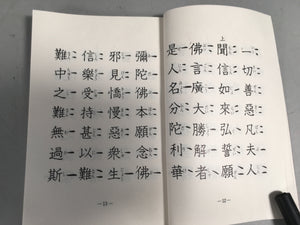 一切善惡凡夫人
上
聞信如來弘誓願
佛言廣大勝解者
是人名分陀利華
—12—
彌陀佛本願念佛
邪見憍慢惡衆生
信樂受持甚以難
難中之難無過斯
—13—